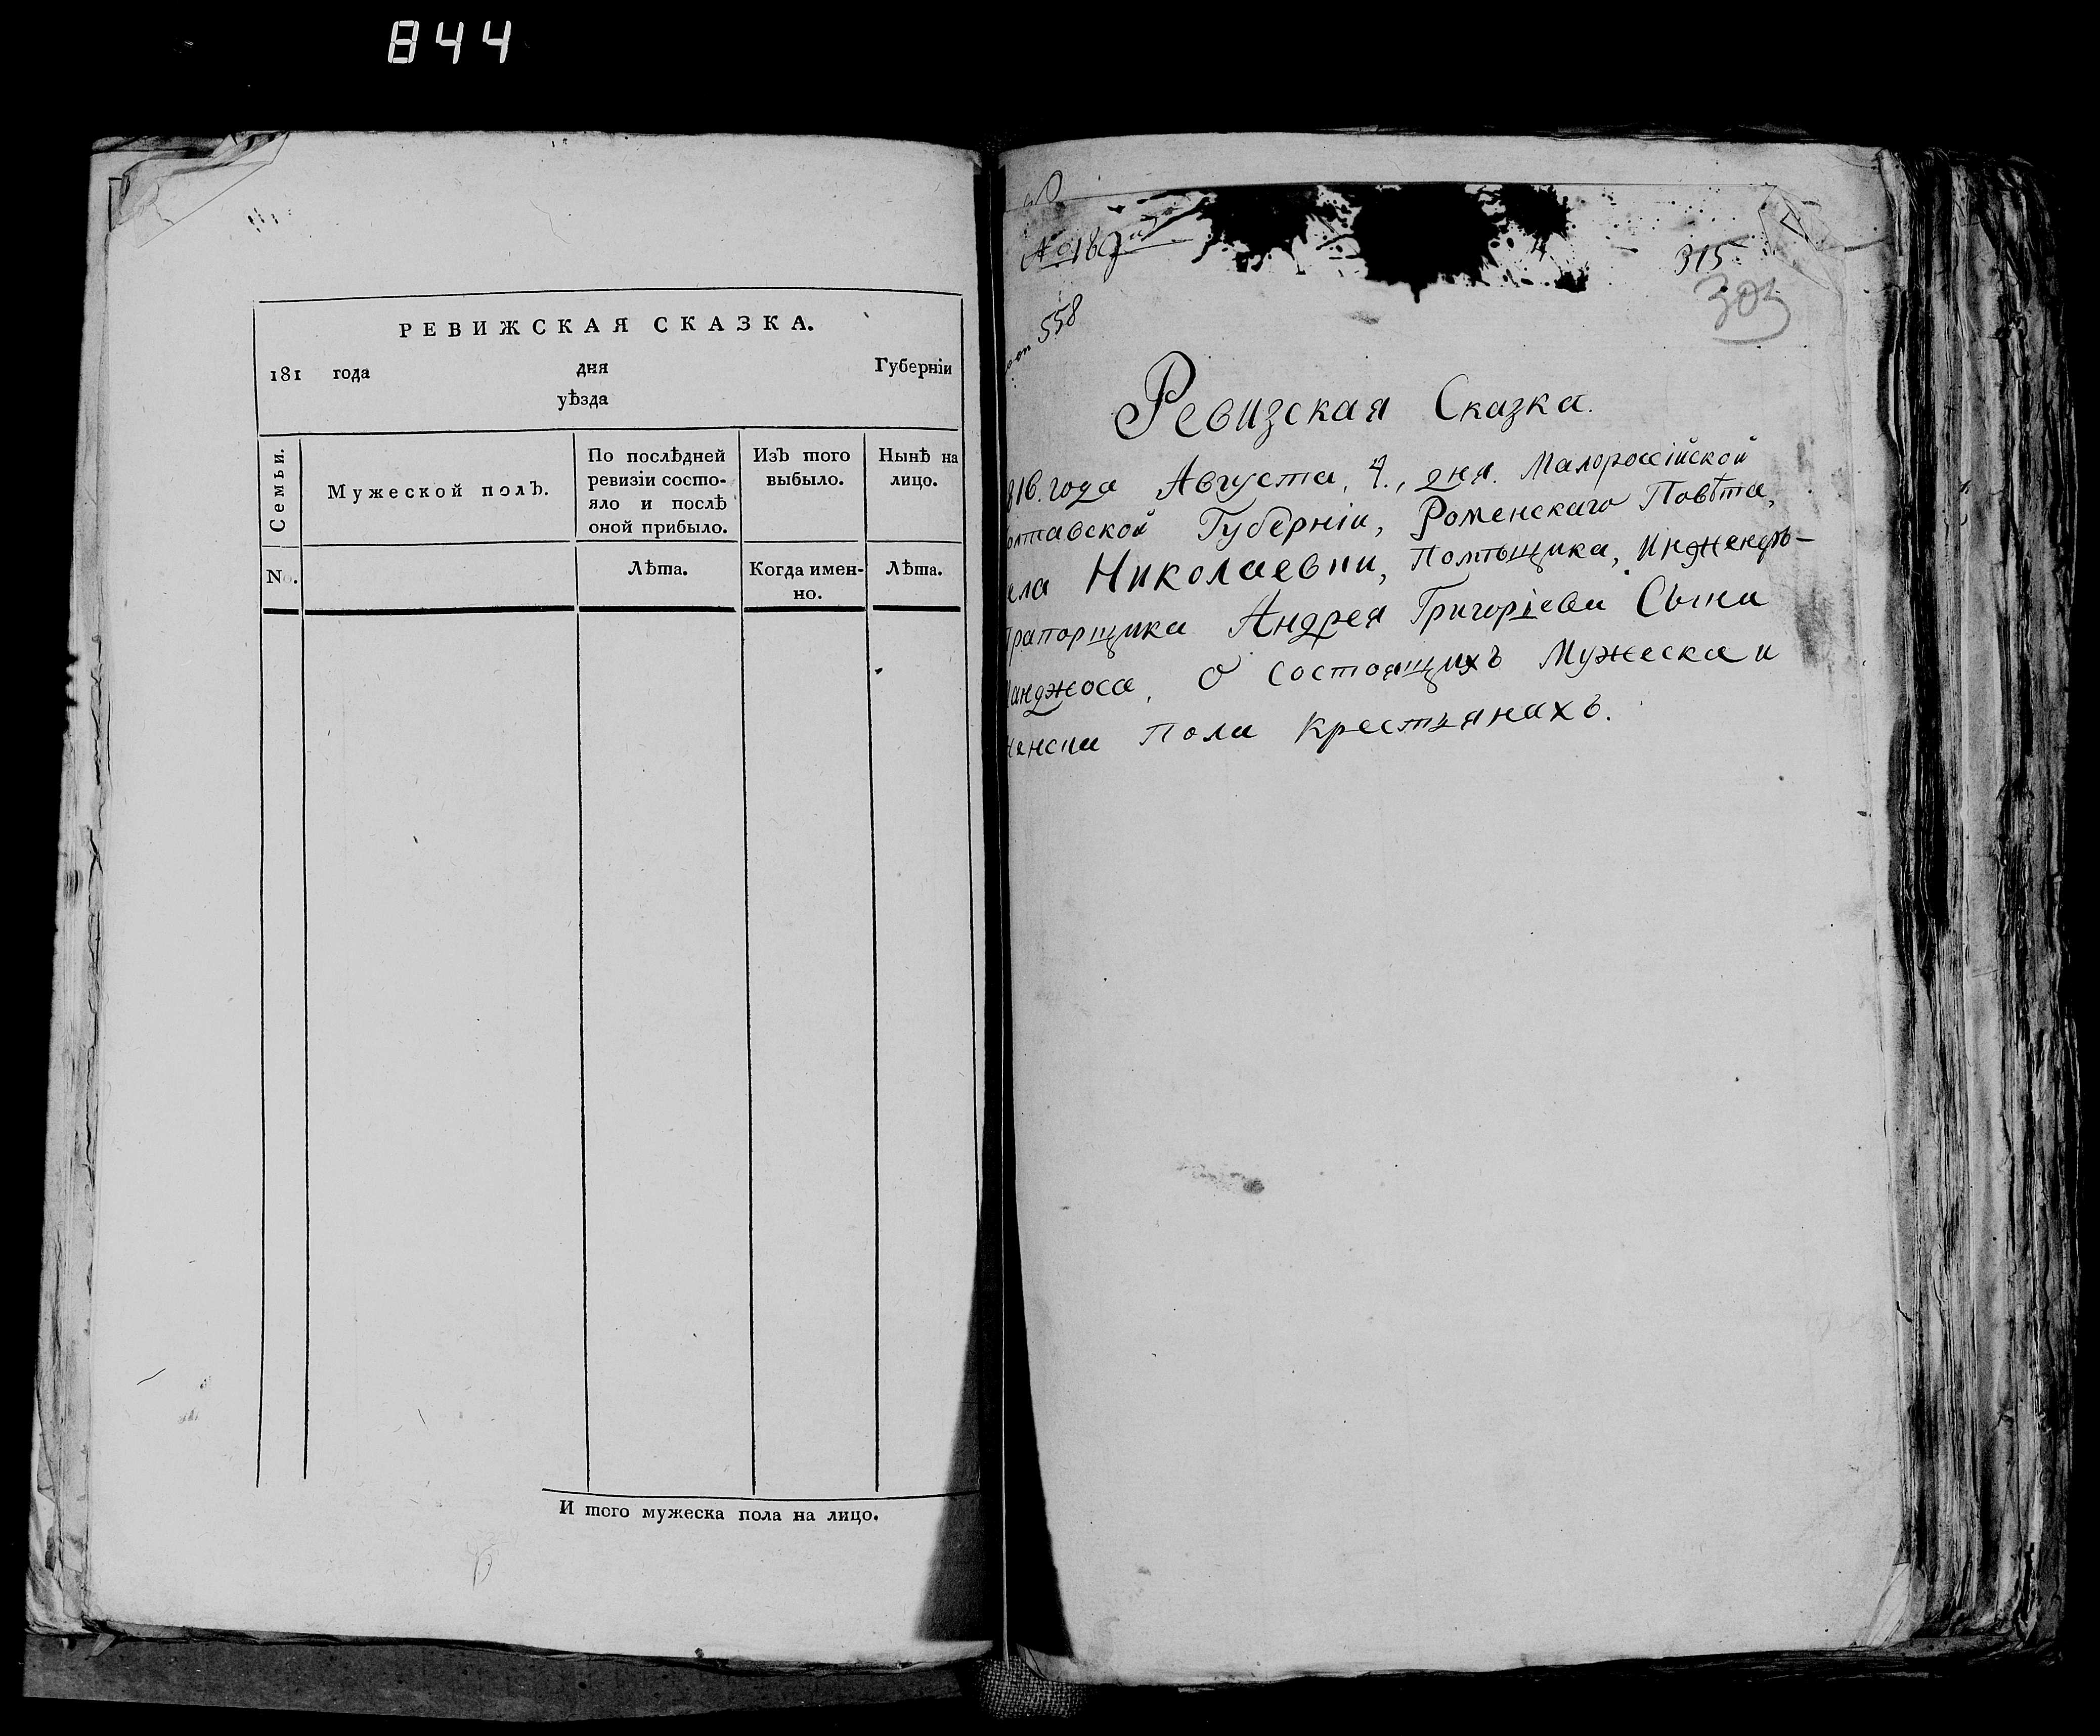 844
РЕВИЖСКАЯ СКАЗКА.
181 года дня Губерніи
уѣзда
Семьи.
Мужеской полъ.
По послѣдней
ревизіи состо-
яло и послѣ
оной прибыло.
Изъ того
выбыло.
Нынѣ на
лицо.
No.
Лѣта.
Когда имен-
но.
Лѣта.
И того мужеска пола на лицо.
315
558
Ревизская Сказка.
816. года Августа, 4., дня. Малороссійской
олтавской Губерніи, Роменскаго Повѣта,
ела Николаевки, Помѣщика, Инженеръ-
Прапорщика Андрея Григоріева Сына
Манджоса, О состоящихъ Мужеска и
женска пола Крестьянахъ.